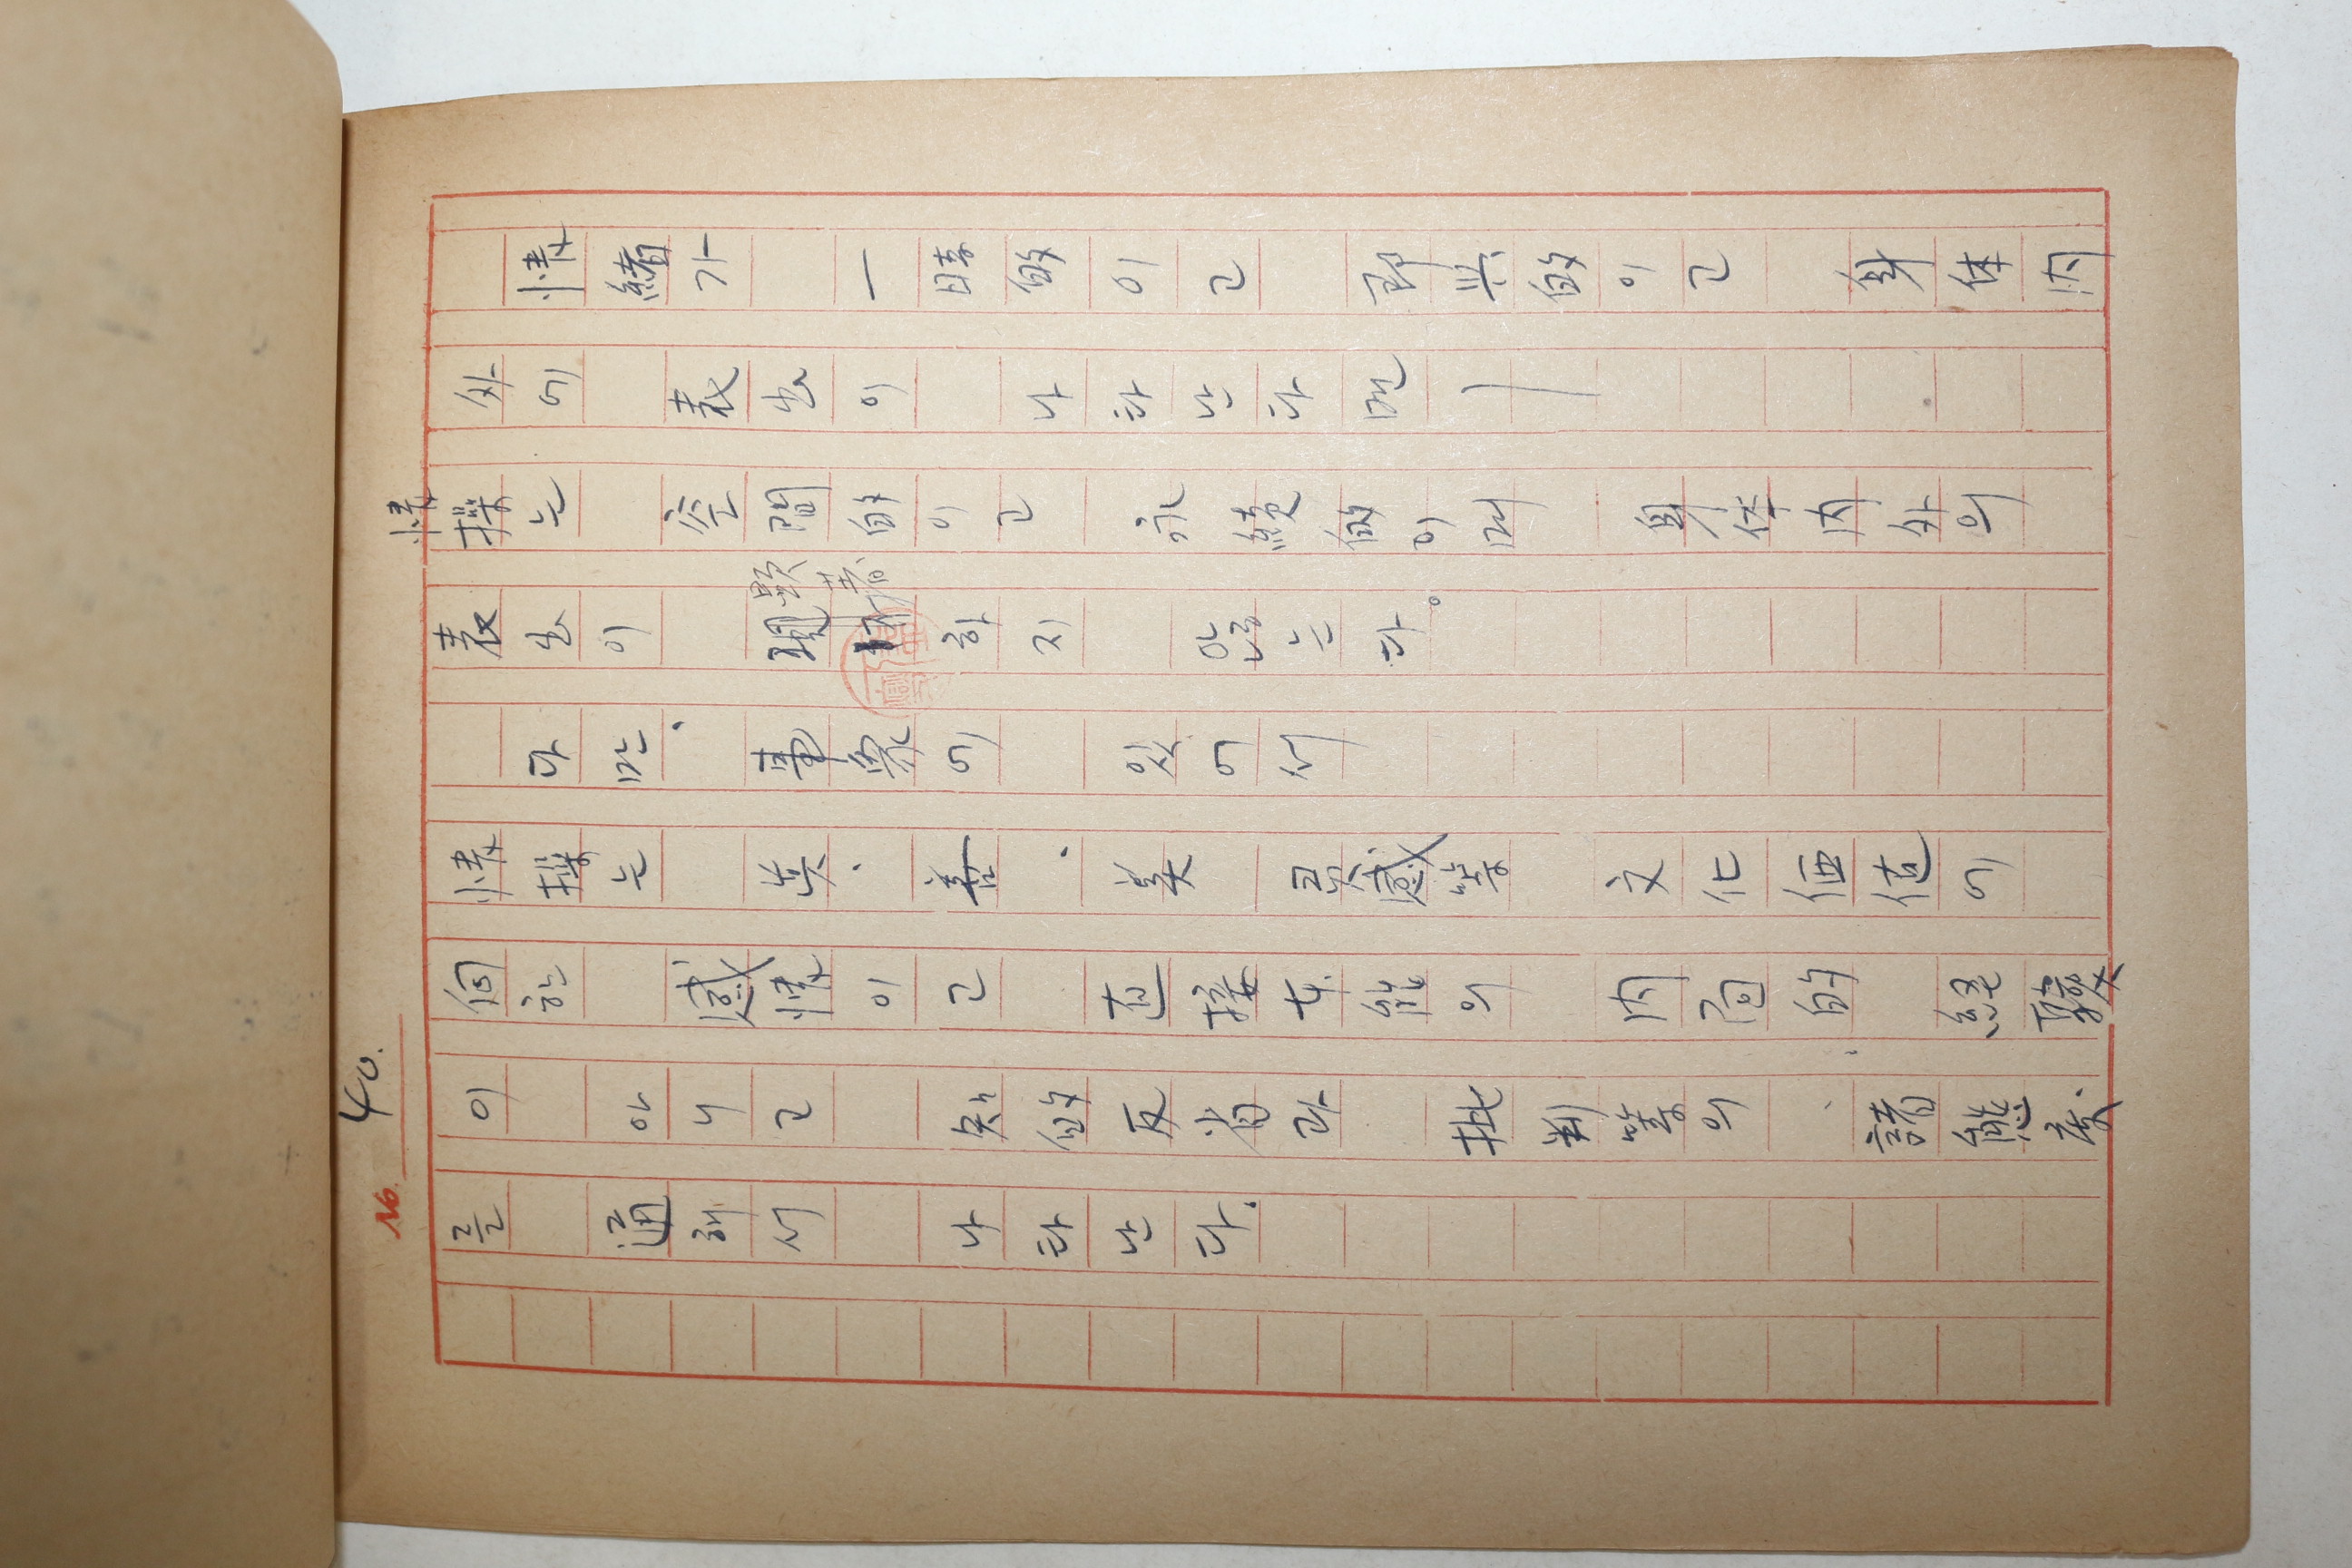 No. 40.
情緖가 一時的이고 即興的이고 身体内
外에 表出이 나타난다면 —
情操는 空間的이고 永續的이며 身体内外의
表出이 顯著하지 않는다。
다만、 事象에 있어서
情操는 眞、善、美 灵感等 文化価値에
向한 感情이고 直接本能의 内面的 経驗
이 아니고 知的反省과 批判等의、諸態度
를 通해서 나타난다。